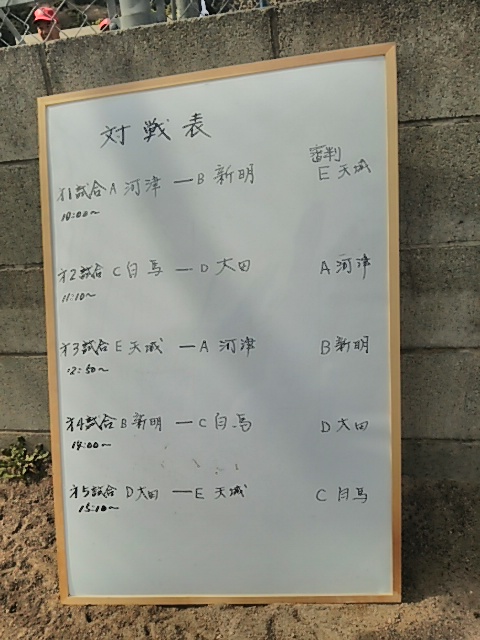 対戦表
審判
才1試合 A 河津 ー B 新明 E 天城
10:00~
才2試合 C 白馬 ー D 大田 A 河津
11:10~
才3試合 E 天城 ー A 河津 B 新明
12:50~
才4試合 B 新明 ー C 白馬 D 大田
14:00~
才5試合 D 大田 ー E 天城 C 白馬
15:10~